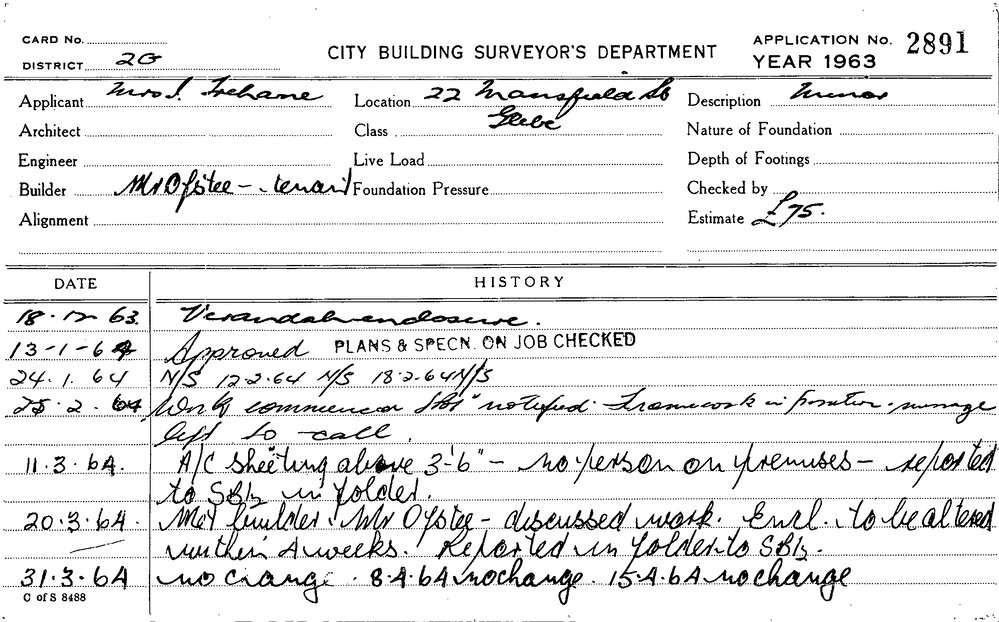 CARD No.
DISTRICT 2G
CITY BUILDING SURVEYOR'S DEPARTMENT
APPLICATION No. 2891
YEAR 1963
Applicant Mrs I. Trehane
Location 22 Mansfield St
Glebe
Description Minor
Architect
Class
Nature of Foundation
Engineer
Live Load
Depth of Footings
Builder Mr Ofstee - tenant
Foundation Pressure
Checked by
Alignment
Estimate £75.
DATE HISTORY
18.12.63. Verandah enclosure.
13-1-64 Approved PLANS & SPECN. ON JOB CHECKED
24.1.64 N/S 12.2.64 N/S 18.2.64 N/S
25.2.64 Work commenced notified. Framework in position. message
left to call.
11.3.64. A/C sheeting above 3'-6" - no person on premises - reported
to SBI in folder.
20.3.64. Met builder. Mr Ofstee - discussed work. Encl. to be altered
within 4 weeks. Reported in folder to SBI.
31.3.64 no change. 8.4.64 no change. 15.4.64 no change
C of S 8488